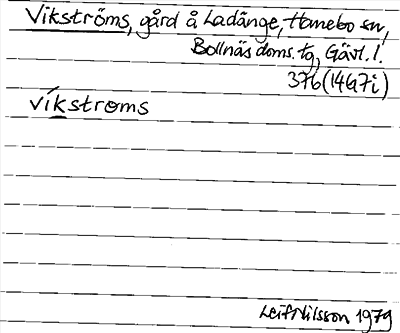 Vikströms, gård å Ladänge, Hanebo sn,
Bollnäs doms. tg, Gävl. l.
37b (14G7i)
víkstroms
Leif Nilsson 1979